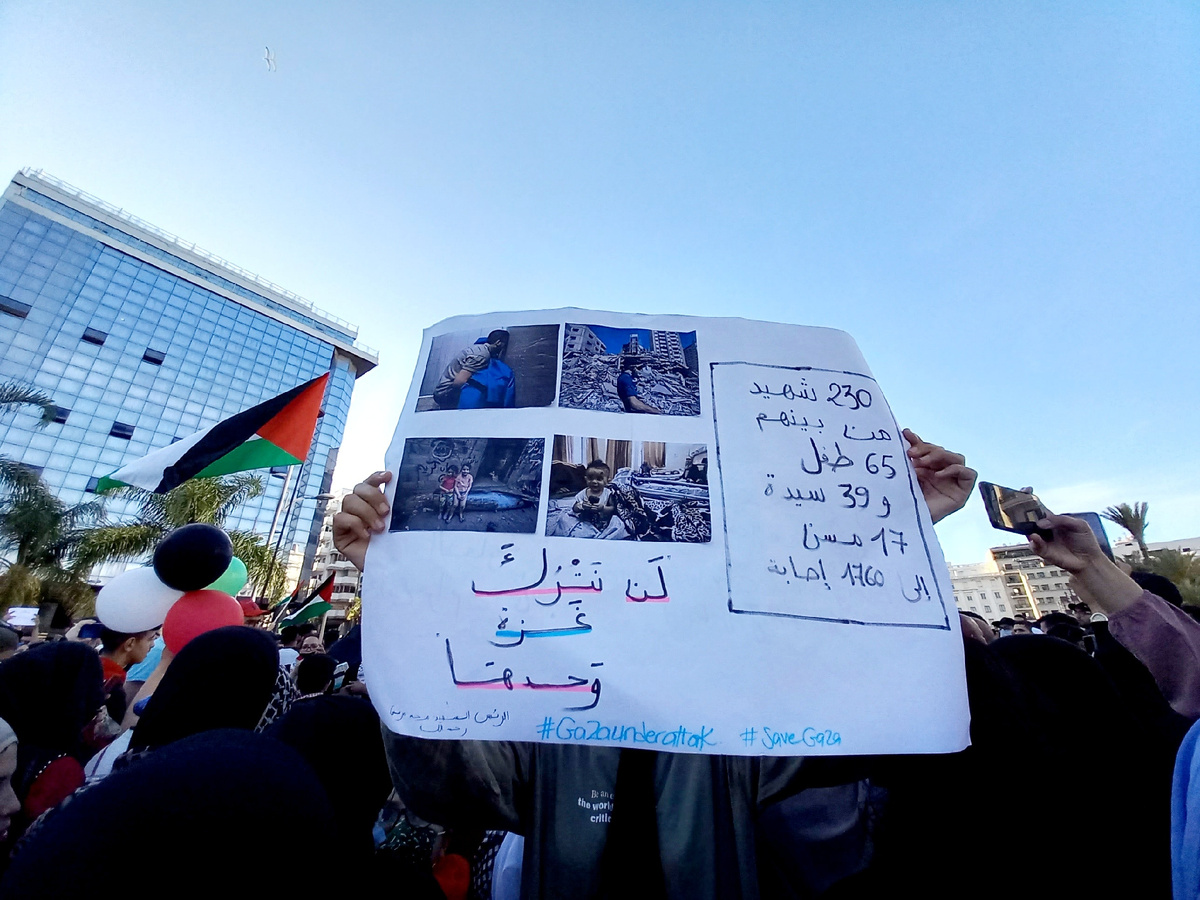 230 شهيد
من بينهم
65 طفل
و 39 سيدة
17 مسن
إلى 1760 إصابة
لَن نَتْرُكَ
غَزة
وَحدهَا
الرئيس
#Gazaunderattak #SaveGaza
Be an
the world
critic